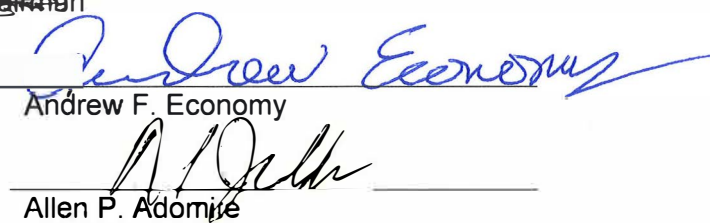 Andrew Economy
Andrew F. Economy
Allen P. Adomite